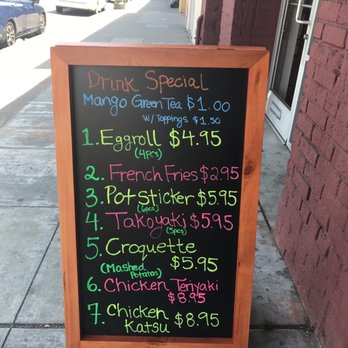 Drink Special
Mango Green Tea $1.00
w/ Toppings $1.50
1. Eggroll $4.95
(4pcs)
2. French Fries $2.95
3. Pot Sticker $5.95
(6pcs)
4. Takoyaki $5.95
(5pcs)
5. Croquette
(Mashed $5.95
Potatoes)
6. Chicken Teriyaki
$8.95
7. Chicken
Katsu $8.95